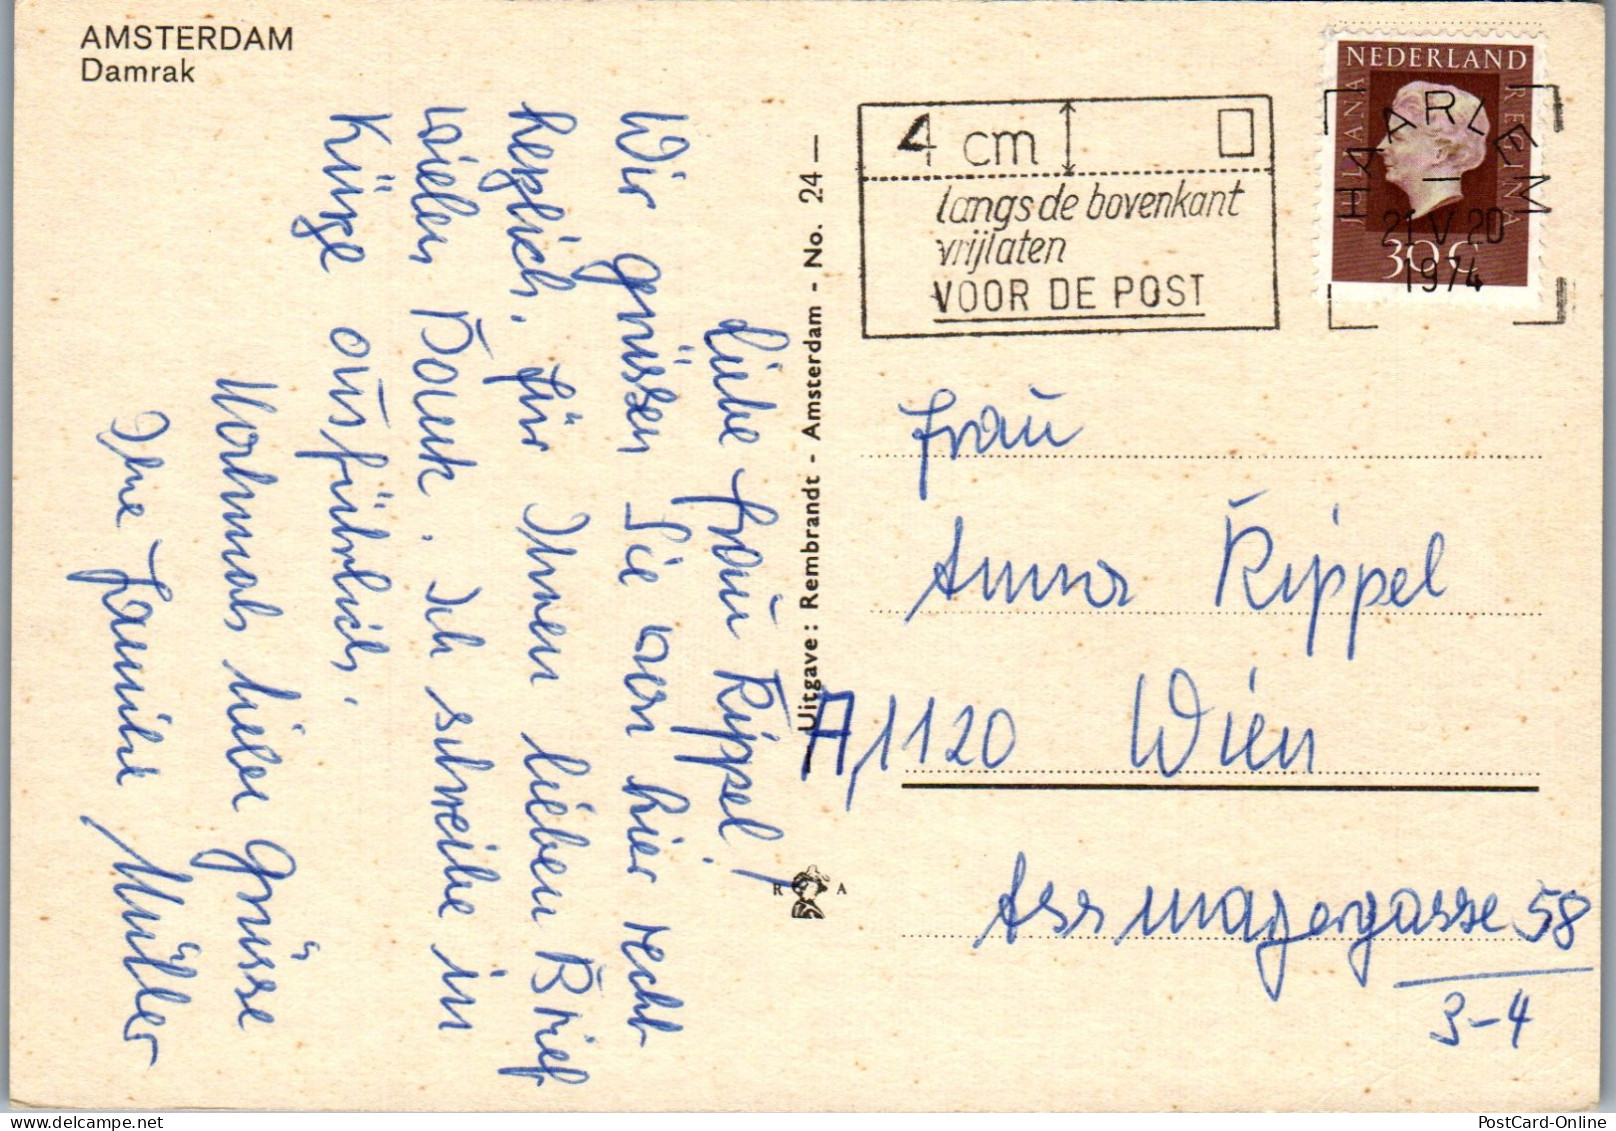 AMSTERDAM
Damrak
Liebe Frau Rippel!
Wir grüssen Sie von hier recht
herzlich. Für Ihnen lieben Brief
vielen Dank. Ich schreibe in
Kürze ausführlich.
Nochmals liebe Grüsse
Ihre Familie Müller
Uitgave: Rembrandt - Amsterdam - No. 24 —
R A
4 cm
langs de bovenkant
vrijlaten
VOOR DE POST
NEDERLAND
JULIANA REGINA
30 c
HAARLEM
21 V 20
1974
Frau
Anna Rippel
A, 1120 Wien
Assmayergasse 58
3-4
PostCard-Online